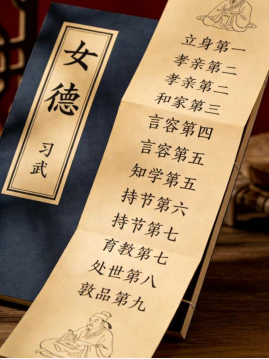 女德
习武
立身第一
孝亲第二
孝亲第二
和家第三
言容第四
言容第五
知学第五
持节第六
持节第七
育教第七
处世第八
敦品第九